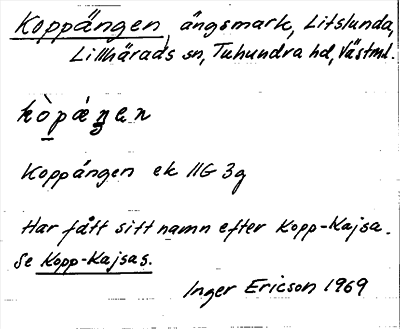 Koppängen, ängsmark, Litslunda,
Lillhärads sn, Tuhundra hd, Västml.
Koppängen ek 11G 3g
Har fått sitt namn efter Kopp-Kajsa.
Se Kopp-Kajsas.
Inger Ericson 1969